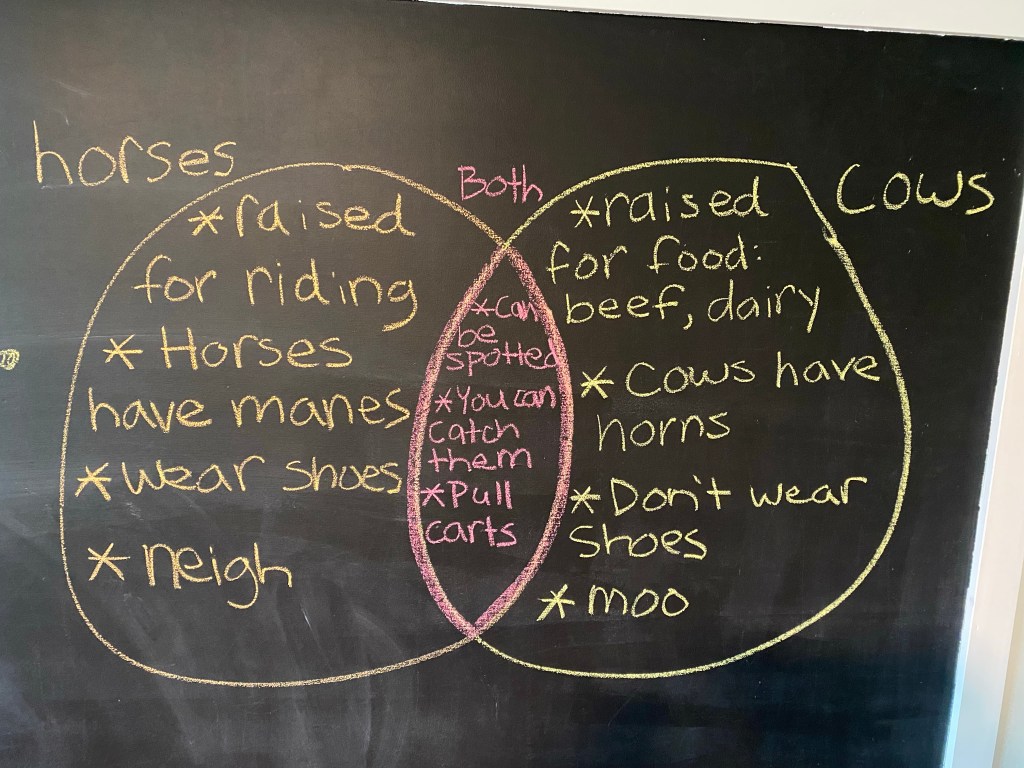 horses
*raised
for riding
* Horses
have manes
*wear shoes
* neigh
Both
*Can
be
spotted
*You can
catch
them
*Pull
carts
Cows
*raised
for food:
beef, dairy
* Cows have
horns
*Don't wear
shoes
*moo